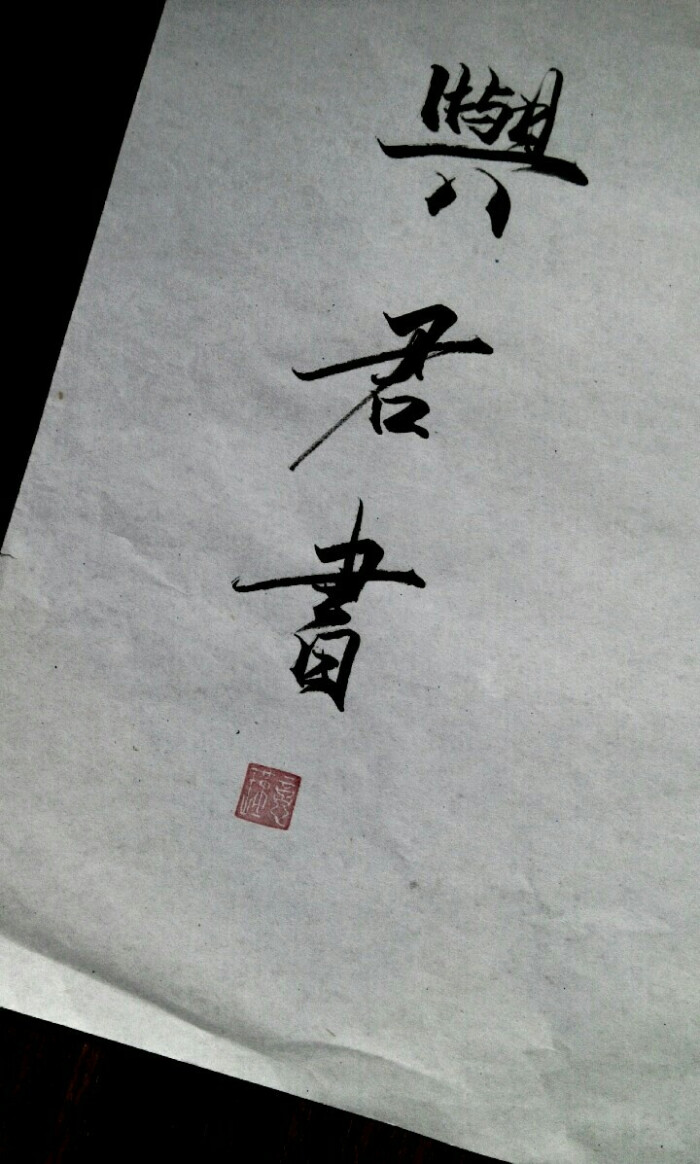 與君書